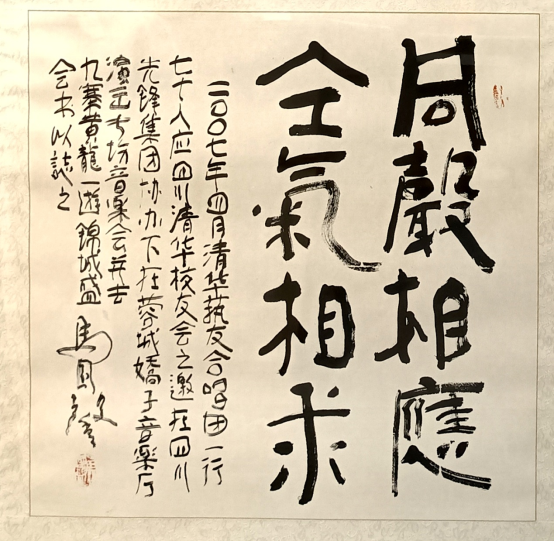 同聲相應
仝氣相求
二〇〇七年四月清华友合唱团一行
七十人应四川清华校友会之邀在四川
先锋集团协办下在蓉城嬌子音樂厅
演出专场音樂会并去
九寨黄龍一遊錦城盛
会书以誌之
馬